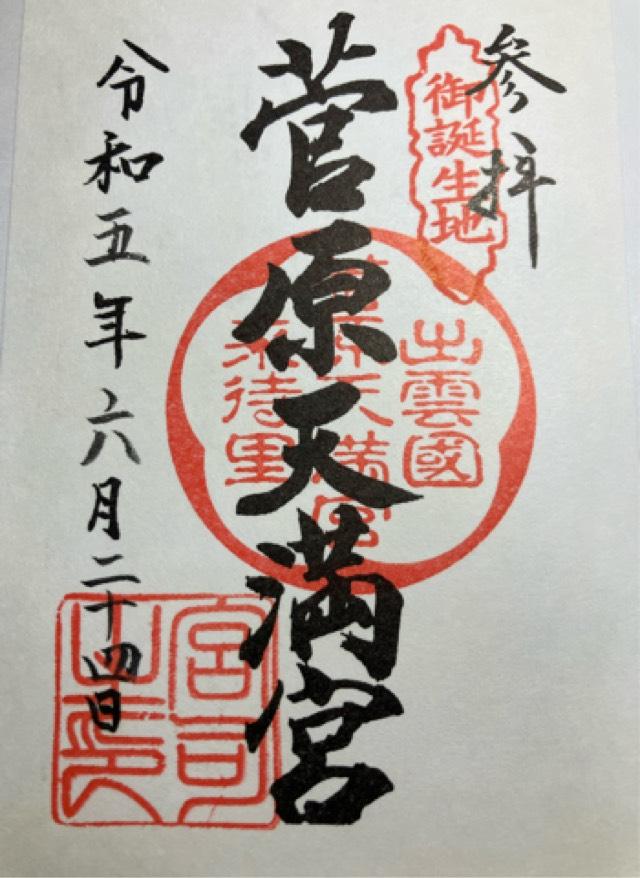 参拝
御誕生地
菅原天満宮
出雲國
菅原天満宮
来待里
令和五年六月二十四日
宮司之印